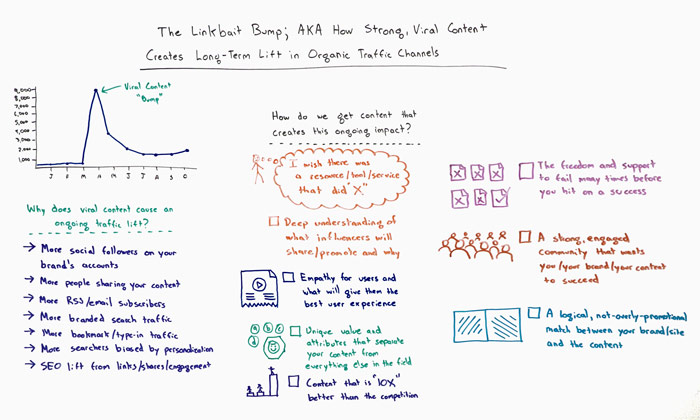 The Linkbait Bump; AKA How Strong, Viral Content
Creates Long-Term Lift in Organic Traffic Channels
9,000
8,000
7,000
6,000
5,000
4,000
3,000
2,000
1,000
J F M A M J J A S O
Viral Content
"Bump"
Why does viral content cause an
ongoing traffic lift?
→ More social followers on your
brand's accounts
→ More people sharing your content
→ More RSS/email subscribers
→ More branded search traffic
→ More bookmark/type-in traffic
→ More searchers biased by personalization
→ SEO lift from links/shares/engagement
How do we get content that
creates this ongoing impact?
I wish there was
a resource/tool/service
that did "X"
Deep understanding of
what influencers will
share/promote and why
Empathy for users and
what will give them the
best user experience
a b c
d
Unique value and
attributes that separate
your content from
everything else in the field
Content that is "10X"
better than the competition
The freedom and support
to fail many times before
you hit on a success
A strong, engaged
community that wants
you/your brand/your content
to succeed
A logical, not-overly-promotional
match between your brand/site
and the content